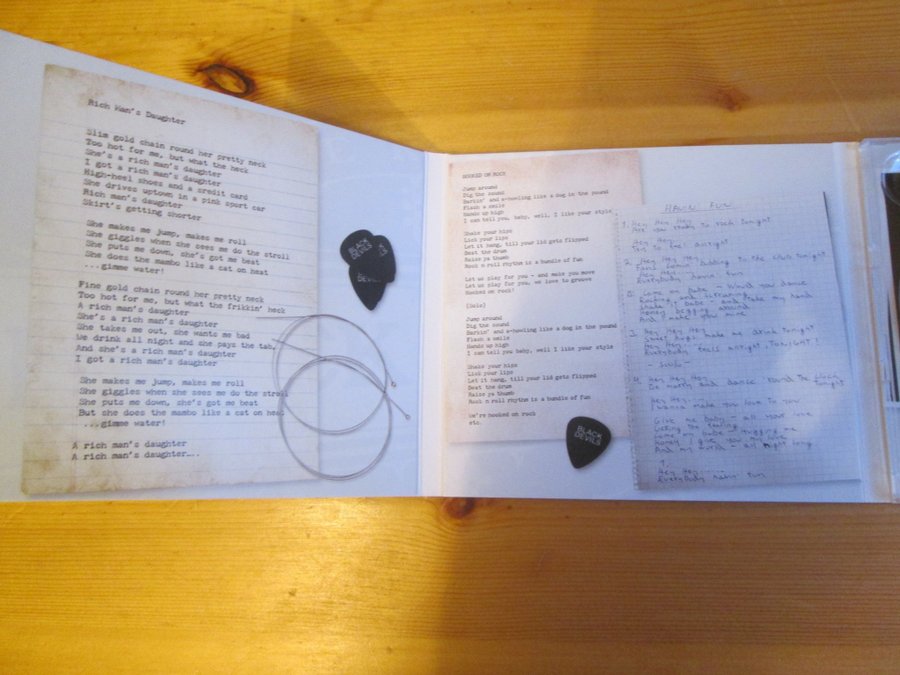 Rich Man's Daughter
Slim gold chain round her pretty neck
Too hot for me, but what the neck
She's a rich man's daughter
I got a rich man's daughter
High-heel shoes and a credit card
She drives uptown in a pink sport car
Rich man's daughter
Skirt's getting shorter
She makes me jump, makes me roll
She giggles when she sees me do the stroll
She puts me down, she's got me beat
She does the mambo like a cat on heat
...gimme water!
Fine gold chain round her pretty neck
Too hot for me, but what the frikkin' heck
A rich man's daughter
She's a rich man's daughter
She takes me out, she wants me bad
We drink all night and she pays the tab,
And she's a rich man's daughter
I got a rich man's daughter
She makes me jump, makes me roll
She giggles when she sees me do the stroll
She puts me down, she's got me beat
But she does the mambo like a cat on heat
...gimme water!
A rich man's daughter
A rich man's daughter....
BLACK
DEVILS
DEVILS
HOOKED ON ROCK
Jump around
Dig the sound
Barkin' and a-howling like a dog in the pound
Flash a smile
Hands up high
I can tell you, baby, well, I like your style
Shake your hips
Lick your lips
Let it hang, till your lid gets flipped
Beat the drum
Raise ya thumb
Rock n roll rhythm is a bundle of fun
Let us play for you - and make you move
Let us play for you, we love to groove
Hooked on rock!
(Solo)
Jump around
Dig the sound
Barkin' and a-howling like a dog in the pound
Flash a smile
Hands up high
I can tell you baby, well, I like your style
Shake your hips
Lick your lips
Let it hang, till your lid gets flipped
Beat the drum
Raise ya thumb
Rock n roll rhythm is a bundle of fun
We're hooked on rock
etc.
BLACK
DEVILS
HAVIN' FUN
1. Hey, Hey, Hey
Are you ready to rock tonight
Hey Hey
Try to feel alright
2. Hey, Hey, Hey
to the club tonight
Hey Hey
Everybody havin' fun
Come on babe - Would you dance
Rocking and
babe - and take my hand
Honey begging around
And make you mine
3. Hey, Hey, Hey
make me drink tonight
Hey Hey
Everybody feels alright, TONIGHT!
- SOLO -
4. Hey Hey Hey
and dance 'round the block
tonight
Hey Hey.....
I wanna make you love to you
Give me baby - all your love
feeling
Come on babe - hugging me
Honey I give you my love
And my world - all night long
Hey Hey......
Everybody havin' fun